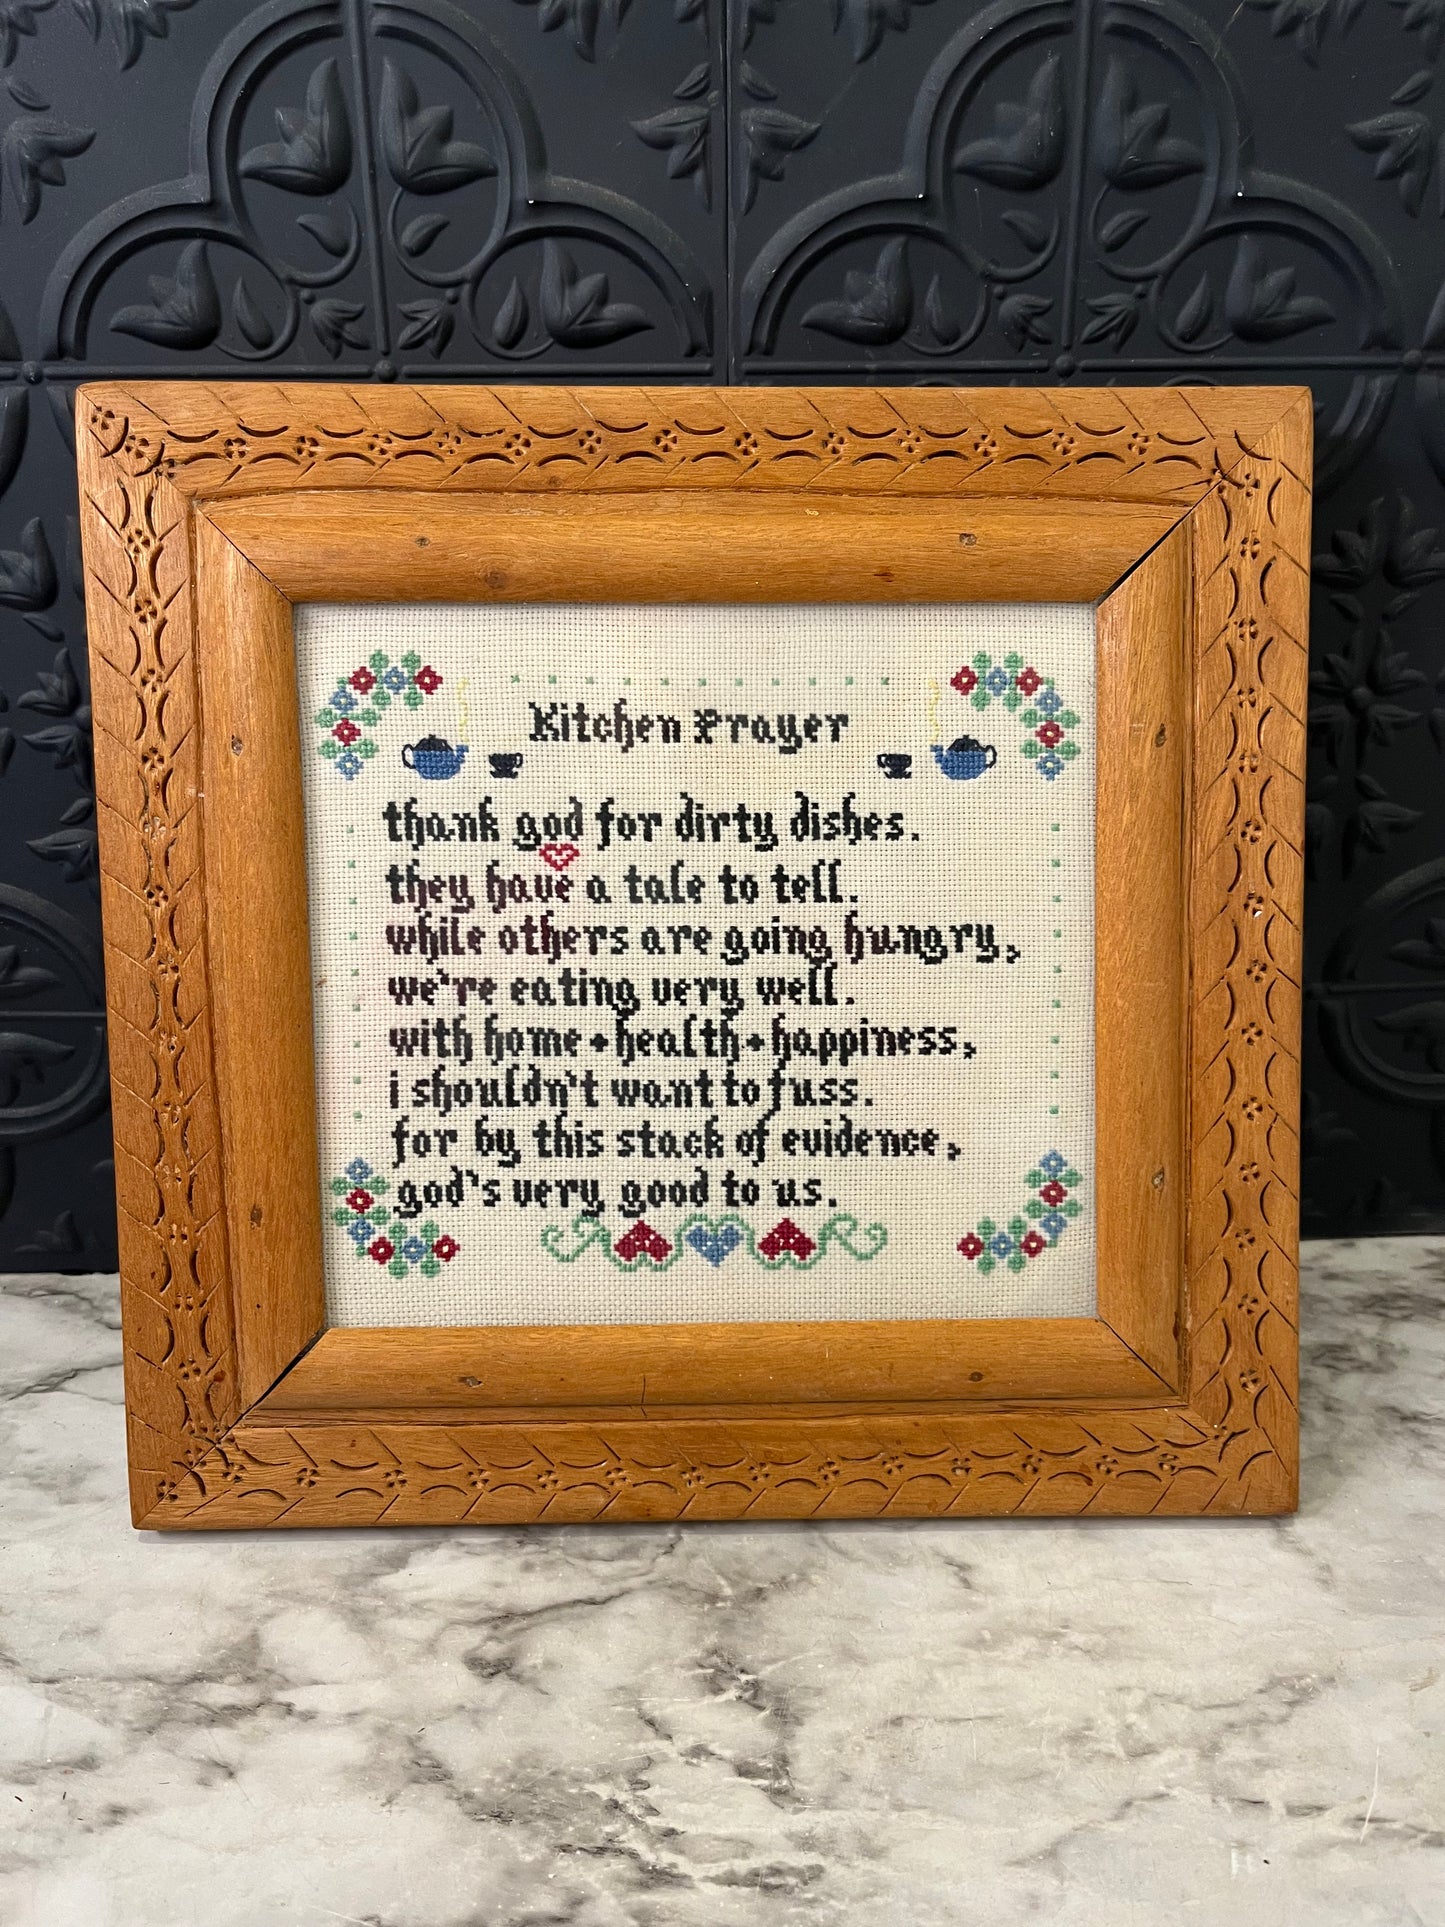 Kitchen Prayer
thank god for dirty dishes.
they have a tale to tell.
while others are going hungry,
we're eating very well.
with home + health + happiness,
i shouldn't want to fuss.
for by this stack of evidence,
god's very good to us.